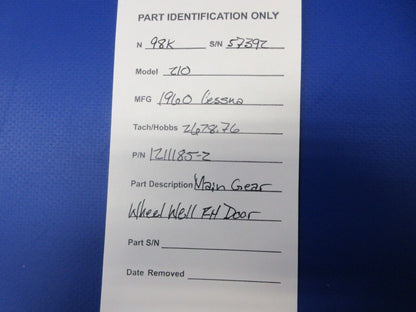 PART IDENTIFICATION ONLY
N 98K S/N 57392
Model 210
MFG 1960 Cessna
Tach/Hobbs 2678.76
P/N 1211185-2
Part Description Main Gear
Wheel Well RH Door
Part S/N
Date Removed